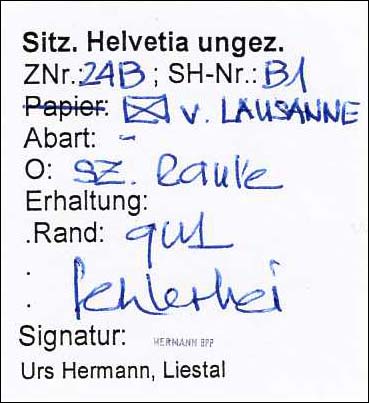 Sitz. Helvetia ungez.
ZNr.: 24B ; SH-Nr.: B1
Papier: v. LAUSANNE
Abart: -
O: sz. Raute
Erhaltung:
.Rand: gut
.
. fehlerfrei
Signatur: HERMANN BPP
Urs Hermann, Liestal